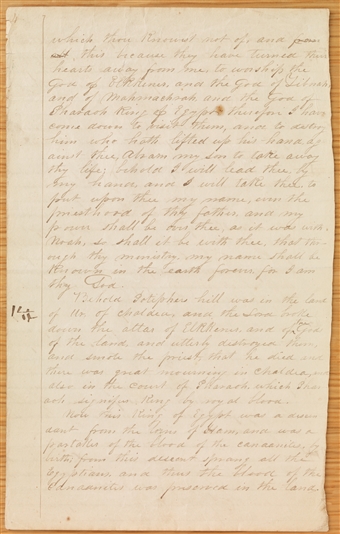 which thou knowest not of, and from
this because they have turned their
hearts away from me, to worship the
God of Elkkener, and the God of Libnah
and of Mahmachrah and the God of
Pharaoh King of Egypt therefore I have
come down to visit them, and to destroy
him who hath lifted up his hand a
ainst thee, Abram my son to take away
thy life, behold I will lead thee by
my hand, and I will take thee to
put upon thee my name, even the
priesthood of thy father, and my
power shall be over thee, as it was with
Noah, so shall it be with thee, that thro
ugh thy ministry, my name shall be
known in the earth forever for I am
thy God.
Behold Potiphers hill was in the land
of Ur of chaldea, and the Lord broke
down the altar of Elkkener and of the Gods
of the land, and utterly destroyed them
and smote the priest, that he died and
there was great mourning in Chaldea, and
also in the court of Pharaoh, which Phar
aoh signifies King by royal blood.
Now this King of Egypt was a desce
ant from the loins of Ham, and was a
partaker of the blood of the canaanites, by
birth, from this descent sprang all the
Egyptians, and thus the blood of the
canaanites was preserved in the land